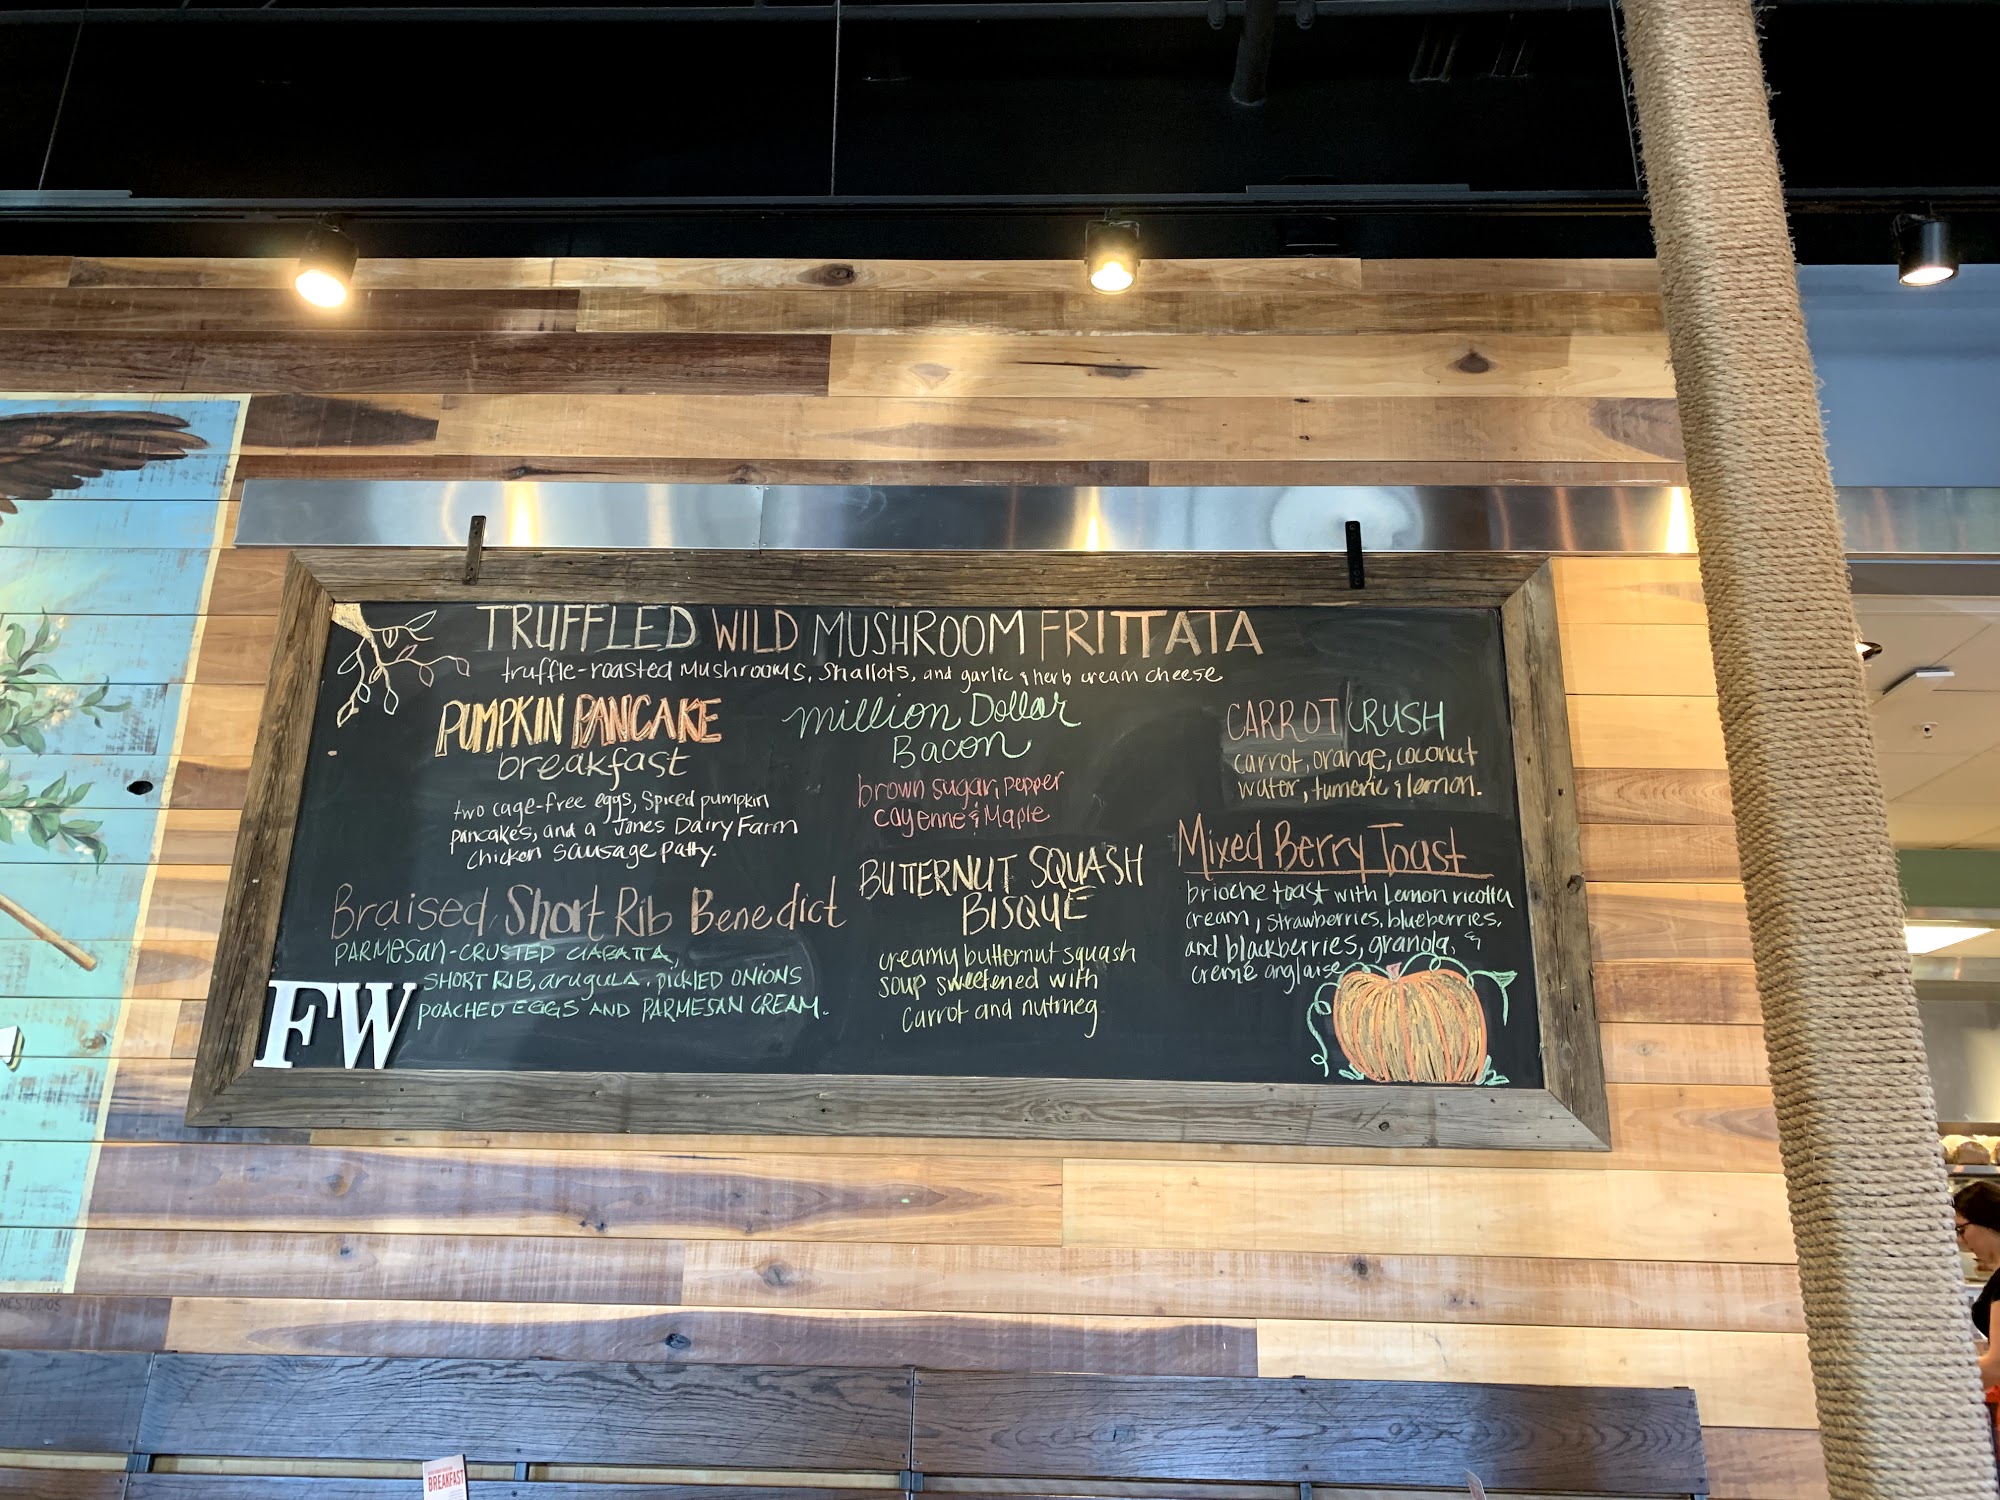 TRUFFLED WILD MUSHROOM FRITTATA
truffle-roasted Mushrooms, Shallots, and garlic & herb cream cheese
PUMPKIN PANCAKE
breakfast
two cage-free eggs, Spiced pumpkin
pancakes, and a Jones Dairy Farm
Chicken Sausage patty.
Braised Short Rib Benedict
PARMESAN-CRUSTED CIABATTA,
SHORT RIB, arugula, PICKLED ONIONS
POACHED EGGS AND PARMESAN CREAM.
FW
million Dollar
Bacon
brown sugar, pepper
cayenne & Maple
BUTTERNUT SQUASH
BISQUE
creamy butternut squash
soup sweetened with
carrot and nutmeg
CARROT CRUSH
carrot, orange, coconut
water, tumeric & lemon.
Mixed Berry Toast
brioche toast with Lemon ricotta
cream, strawberries, blueberries,
and blackberries, granola, &
creme anglaise
NESTUDIOS
BREAKFAST